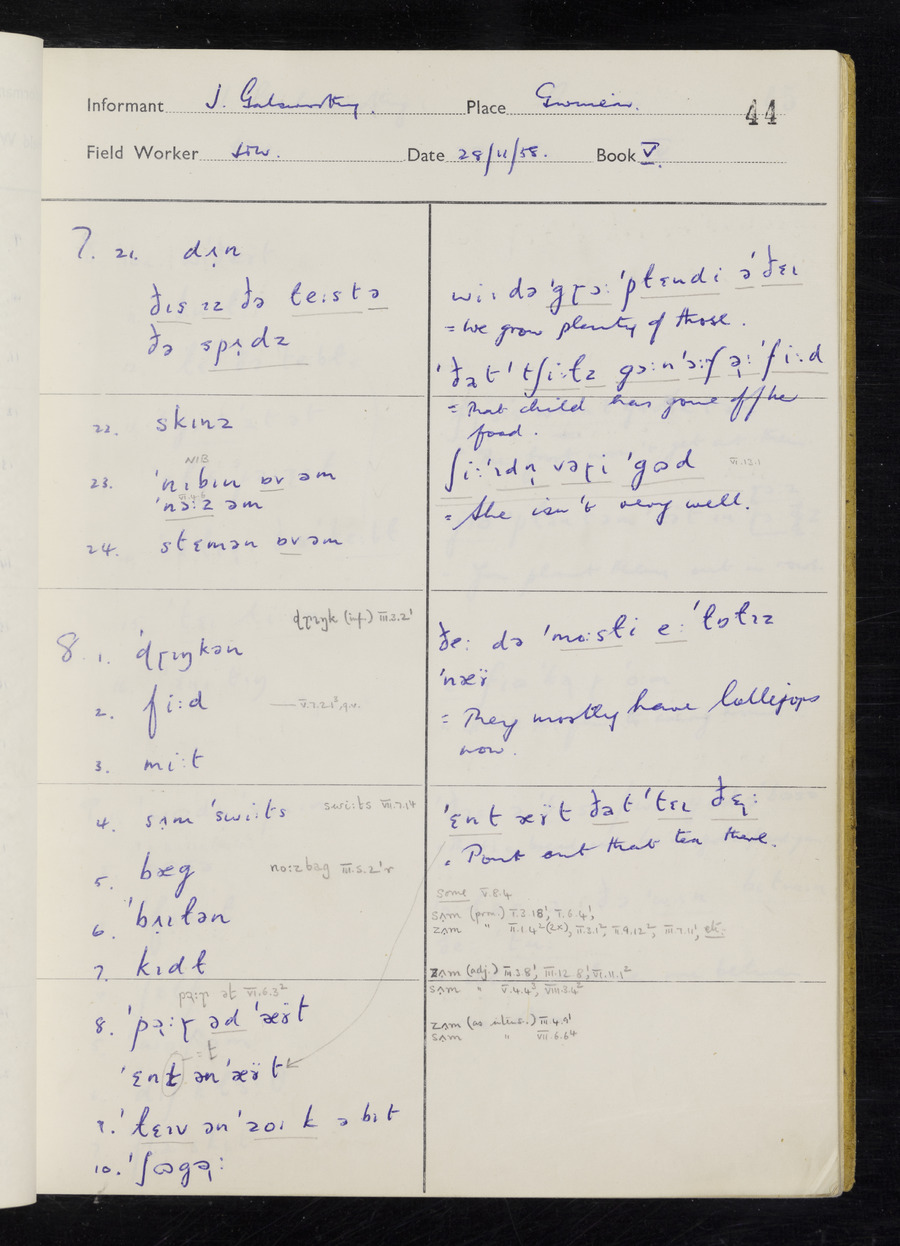 Informant J. Galsworthy. Place 44
Field Worker Date 28/11/58. Book V.
7. 21. dʌ̣n
ðɪs ɪz ðə teːstə
ðə spʌ̣dz
22. skɪnz
NIB
23. ˈnɪbɪn ɒv əm
VI.4.6
ˈnɔːz əm
24. stɛmən ɒv əm
dɽɪŋk (inf.) III.3.2¹
8. 1. ˈdɽɪŋkən
2. fiːd — V.7.21³ q.v.
3. miːt
4. sʌ̣m ˈswiːts swiːts VII.7.14
5. bæg noːzbag III.5.2¹r
6. ˈbʌ̣tən
7. kɪdt
at VI.6.3²
8. əd ˈæɤ̈t
= t
ˈɛnt ən ˈæɤ̈t
9. ən ə bɪt
10. ˈʃʊgəɽː
wiː də ˈgɽɔː ˈplɛndi ə ˈðɛɪ
= We grow plenty of those.
ˈðət ˈtʃiːlz gɔːn ˈɔːf əɽː ˈfiːd
= That child has gone off he
food.
ʃiː ˈɪdn̩ vəɽi ˈgʊd VI.13.1
= She isn't very well.
ðeː də ˈmoːsti eː ˈlɒlɪz
ˈnæɤ̈
= They mostly have lollipops
now.
ˈɛnt æɤ̈t ðət ˈtɛɪ ðɛɽː
= Pour out that tea there.
some V.8.4
sʌm (pron.) V.3.18¹, V.6.4¹,
zʌm " II.1.4²(2x), II.2.1², II.9.12², III.7.11¹, etc.
zʌm (adj.) III.3.8¹, III.12.8¹, VI.11.1²
sʌm " V.4.4³, VIII.3.4²
zʌm (as intens.) III.4.9¹
sʌm " VII.6.6⁴